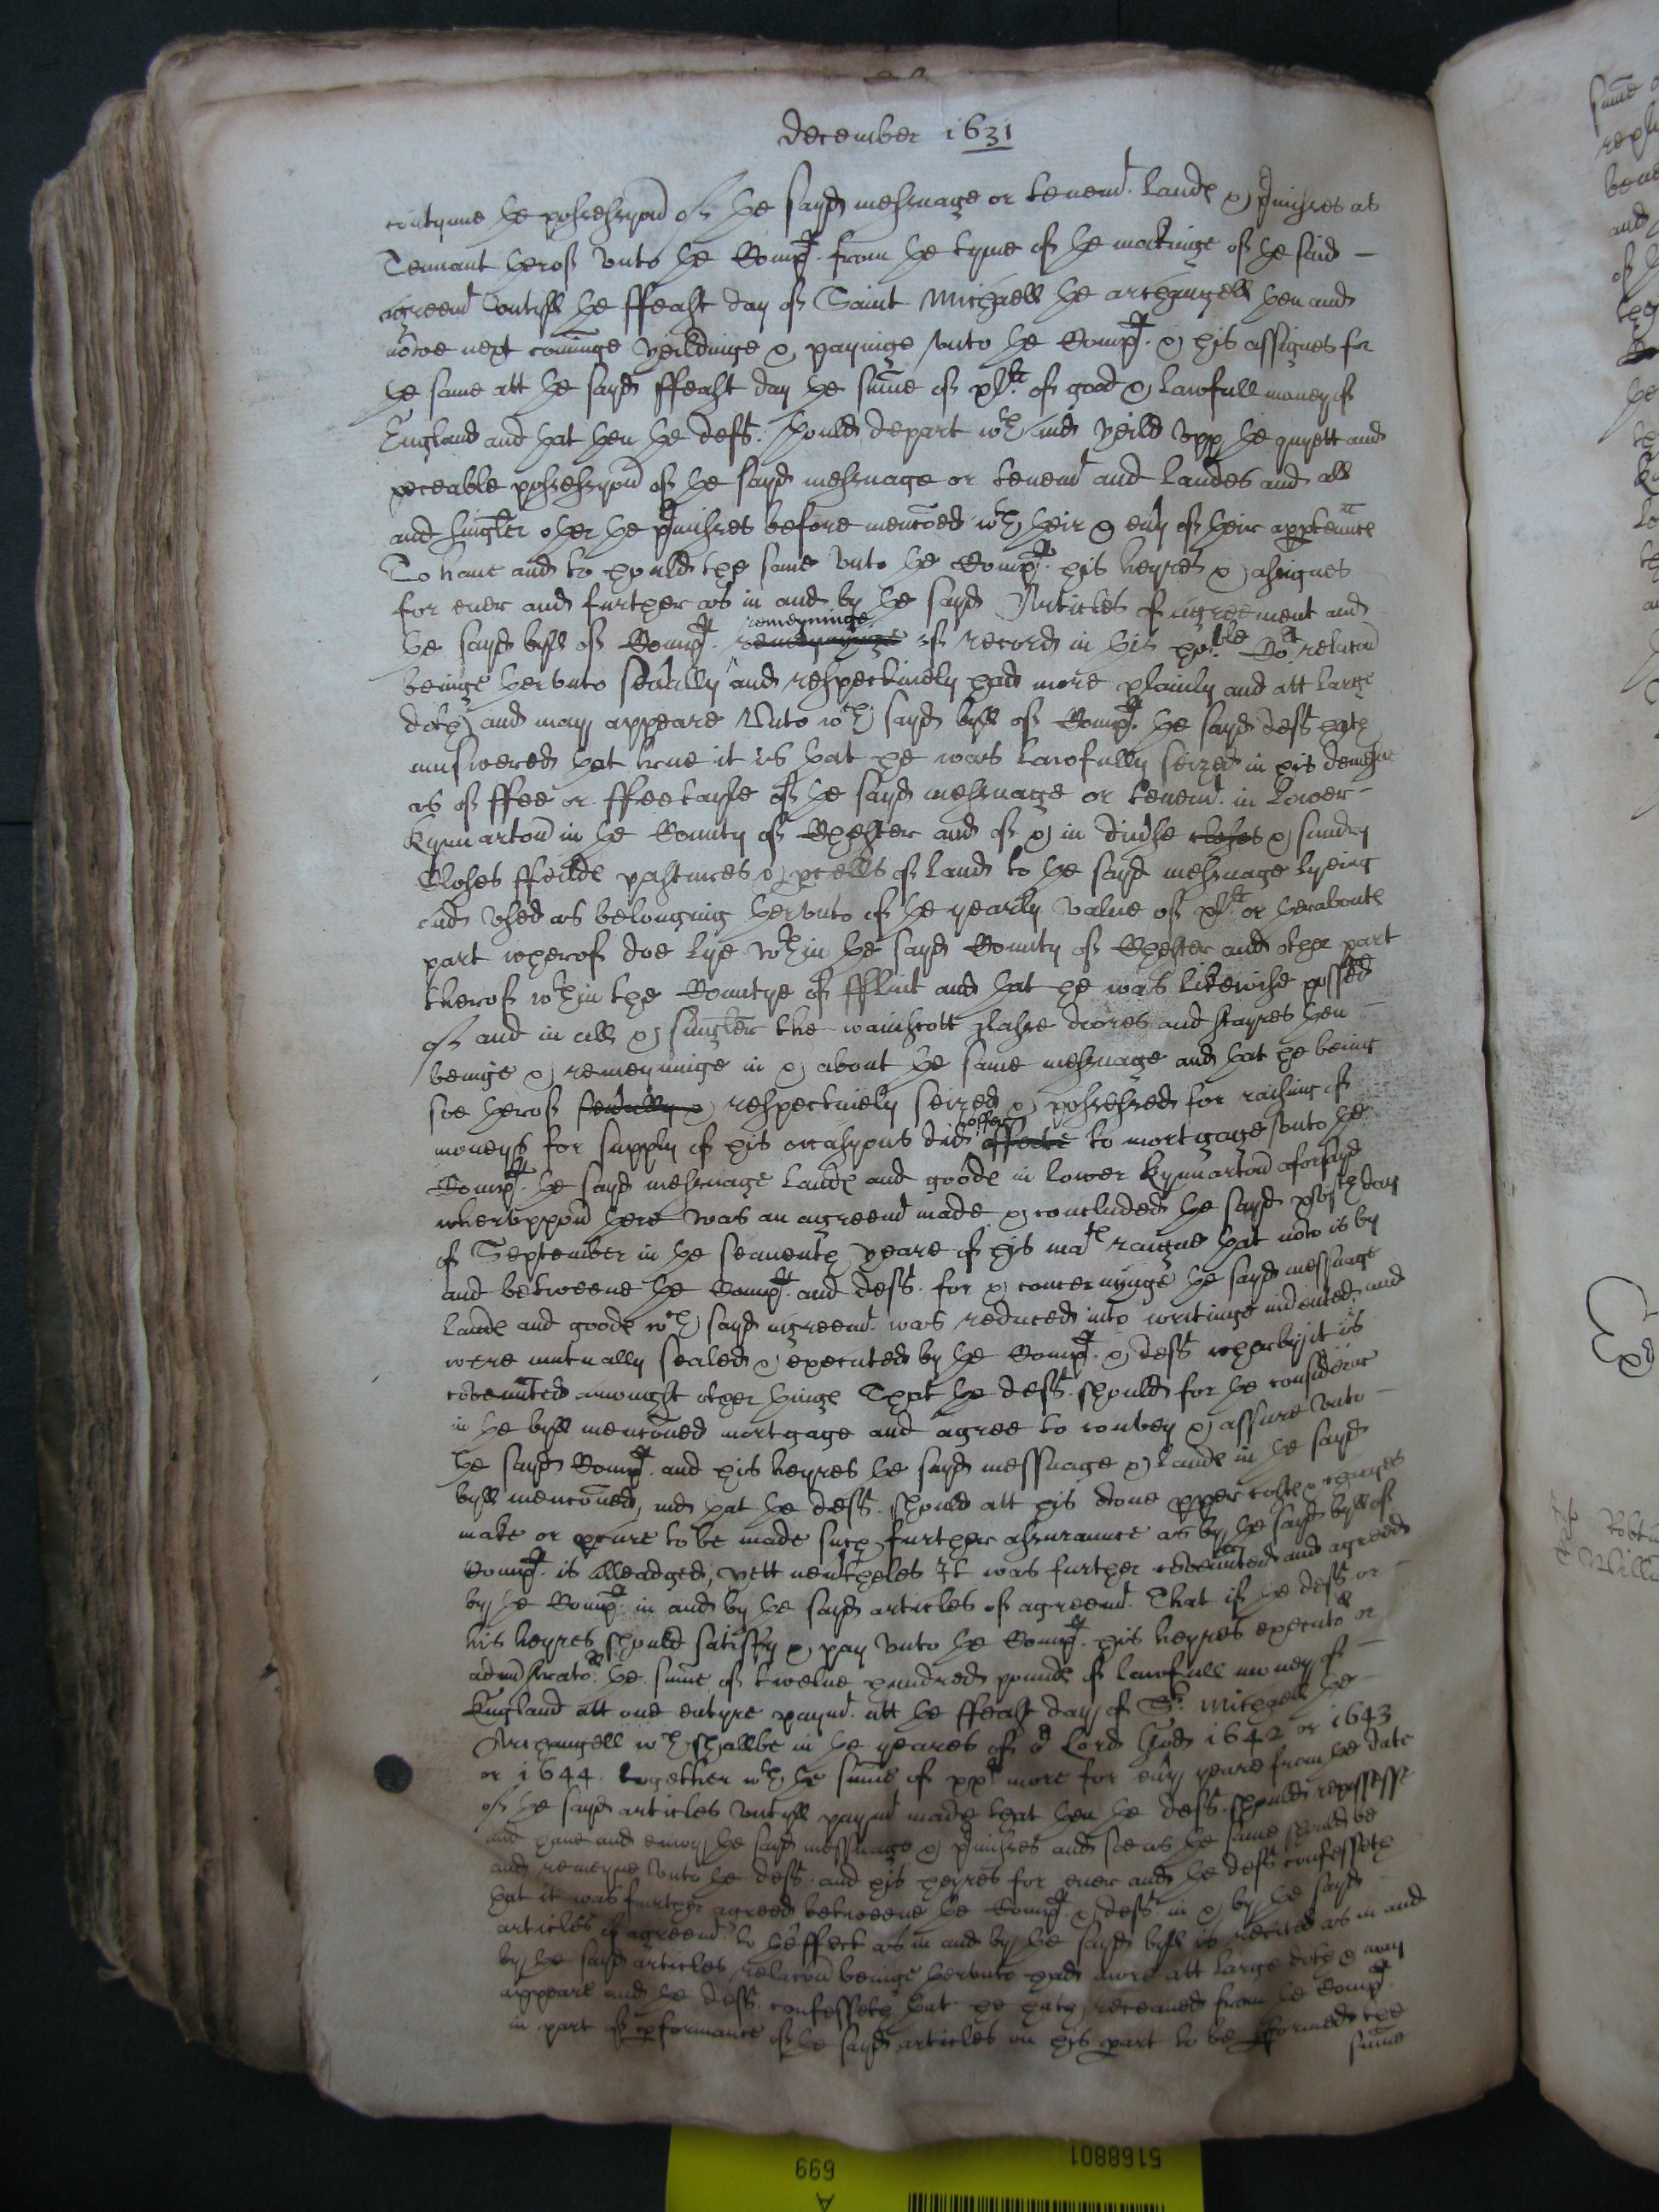 December 1631
contynue the possessyon of the sayd messuage or tenemt. lande & pmisses as
Tennant therof vnto the Compt. from the tyme of the makinge of the said
agreemt vntill the ffeast day of Saint Michaell the archangell then and
nowe next cominge yeildinge & payinge vnto the Compt. & his assignes for
the same att the sayd ffeast day the sume of xlli. of good & lawfull money of
England and that then the deft. should depart wth and yeild vpp the quyett and
peceable possessyon of the sayd messuage or tenemt and landes and all
and singler other the pmisses before mencoed wth their & eury of their apptennce
To haue and to hould the same vnto the Compt. his heyres & assignes
for euer and further as in and by the sayd Articles of agreement and
the sayd byll of Compt. remeyninge of record in this hoble Cot. relacon
beinge thervnto seually and respectiuely had more plainly and att large
doth and may appeare Vnto wch sayd byll of Compt. the sayd deft hath
answered that true it is that he was lawfully seized in his demesne
as of ffee or ffee tayle of the sayd messuage or tenemt. in Lower
Kynnarton in the County of Chester and of & in diuse closes & sundry
Closes ffeilde pastures & pcells of land to the sayd messuage lyeing
and vsed as belonging thervnto of the yearly value of xlli. or theraboute
part wherof doe lye wthin the sayd County of Chester and other part
therof wthin the Countye of fflint and that he was likewise possed
of and in all & singler the wainscott glasse doores and stayres then
beinge & remeyninge in & about the same messuage and that he being
soe therof seually & respectiuely seized & possessed for raising of
moneys for supply of his occasyons did offer to mortgage vnto the
Compt. the sayd messuage lande and goode in Lower Kynnarton aforsayd
whervppon there was an agreemt made & concluded the sayd day
of September in the seauenth yeare of his mats raigne that now is by
and betweene the Compt. and deft. for & concernynge the sayd messuage
lande and goode wch sayd agreemt. was reduced into writinge indented and
were mutually sealed & executed by the Compt. & deft wherby it is
covennted amongst other thinge That the deft. should for the consideracon
in the byll menconed mortgage and agree to convey & assure vnto
the sayd Compt. and his heyres the sayd messuage & lande in the sayd
byll menconed, and that the deft. should att his owne pper coste & charges
make or pcure to be made such further assuraunce as by the sayd byll of
Compt. is alleadged, yett neutheles It was further covennted and agreed
by the Compt. in and by the sayd articles of agreemt. That if the deft or
his heyres should satisfy & pay vnto the Compt. his heyres executors or
admstrators. the sume of twelue hundred pounde of lawfull money of
England att one entyre paymt. att the ffeast day of St. Michaell the
Archangell wch shallbe in the yeares of or Lord God 1642 or 1643
or 1644. together wth the sume of xxli more for eury yeare from the date
of the sayd articles vntyll paymt made that then the deft. should repossesse
and haue and enioy the sayd messuage & pmisses and soe as the same should be
and remeyne vnto the deft. and his heyres for euer and the deft confesseth
that it was further agreed betweene the Compt. & deft. in & by the sayd
articles of agreemt. to theffect as in and by the sayd byll is recited as in and
by the sayd articles relacon beinge thervnto had more att large doth & may
appeare and the deft. confesseth that he hath receaued from the Compt.
in part of pformance of the sayd articles on his part to be pformed the
sume
5168801
699
A